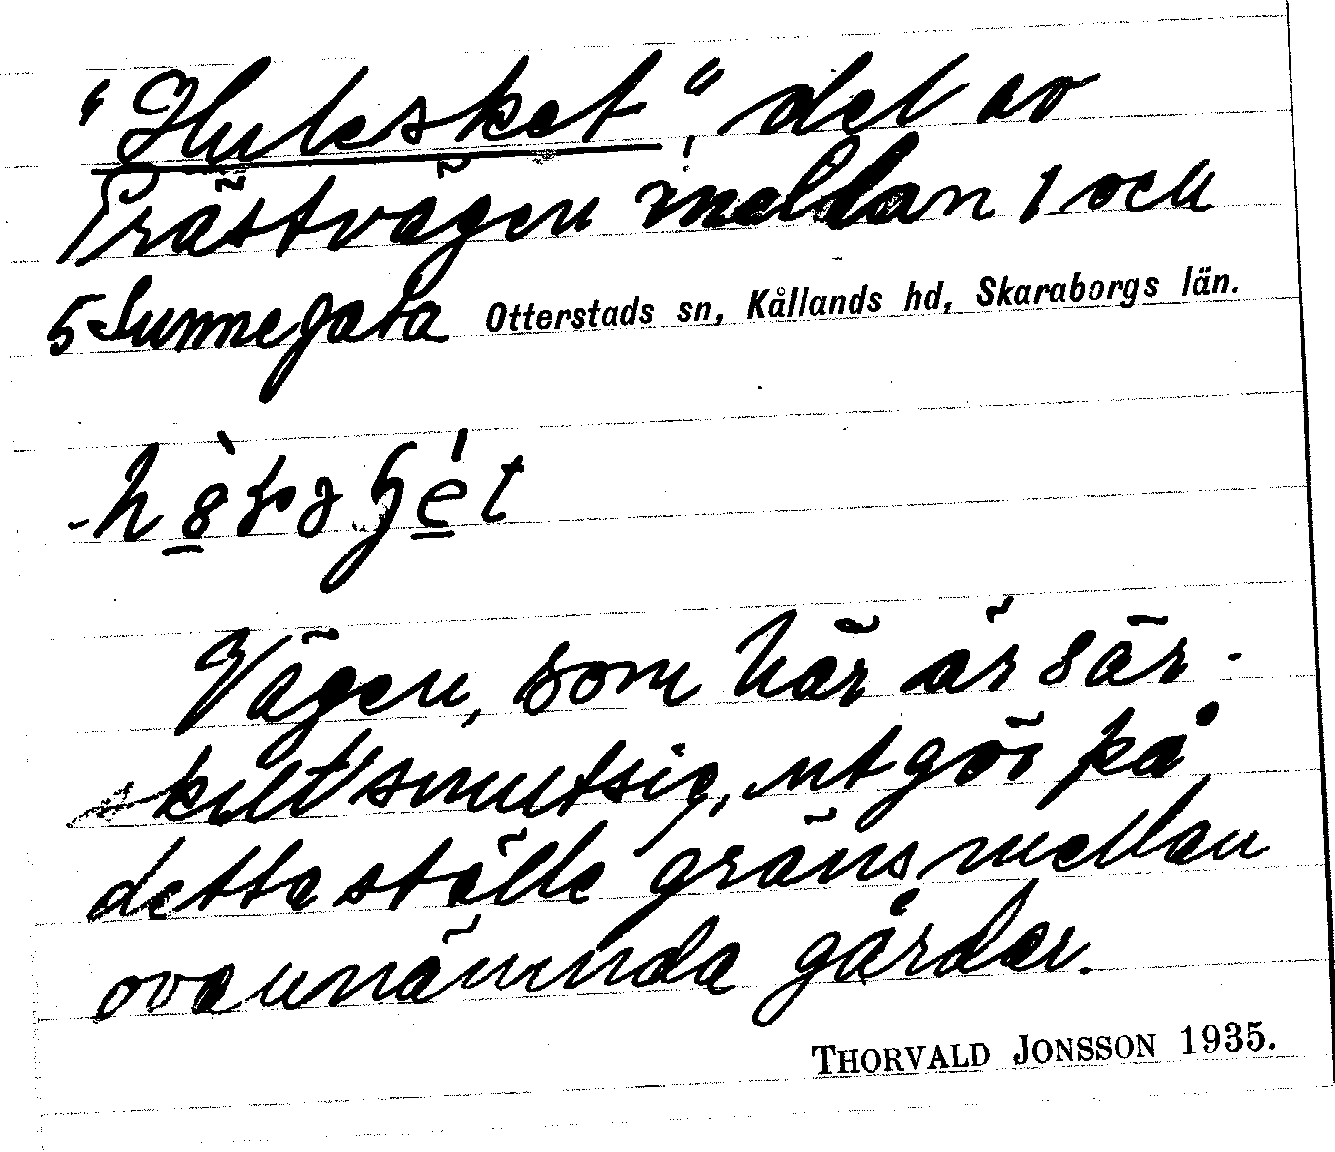 "Hulesket", del av
Prästvägen mellan 1 och
5 Sunnegata Otterstads sn, Kållands hd, Skaraborgs län.
Vägen, som här är sär-
skilt smutsig, utgör på
detta ställe gräns mellan
ovannämnda gårdar.
THORVALD JONSSON 1935.